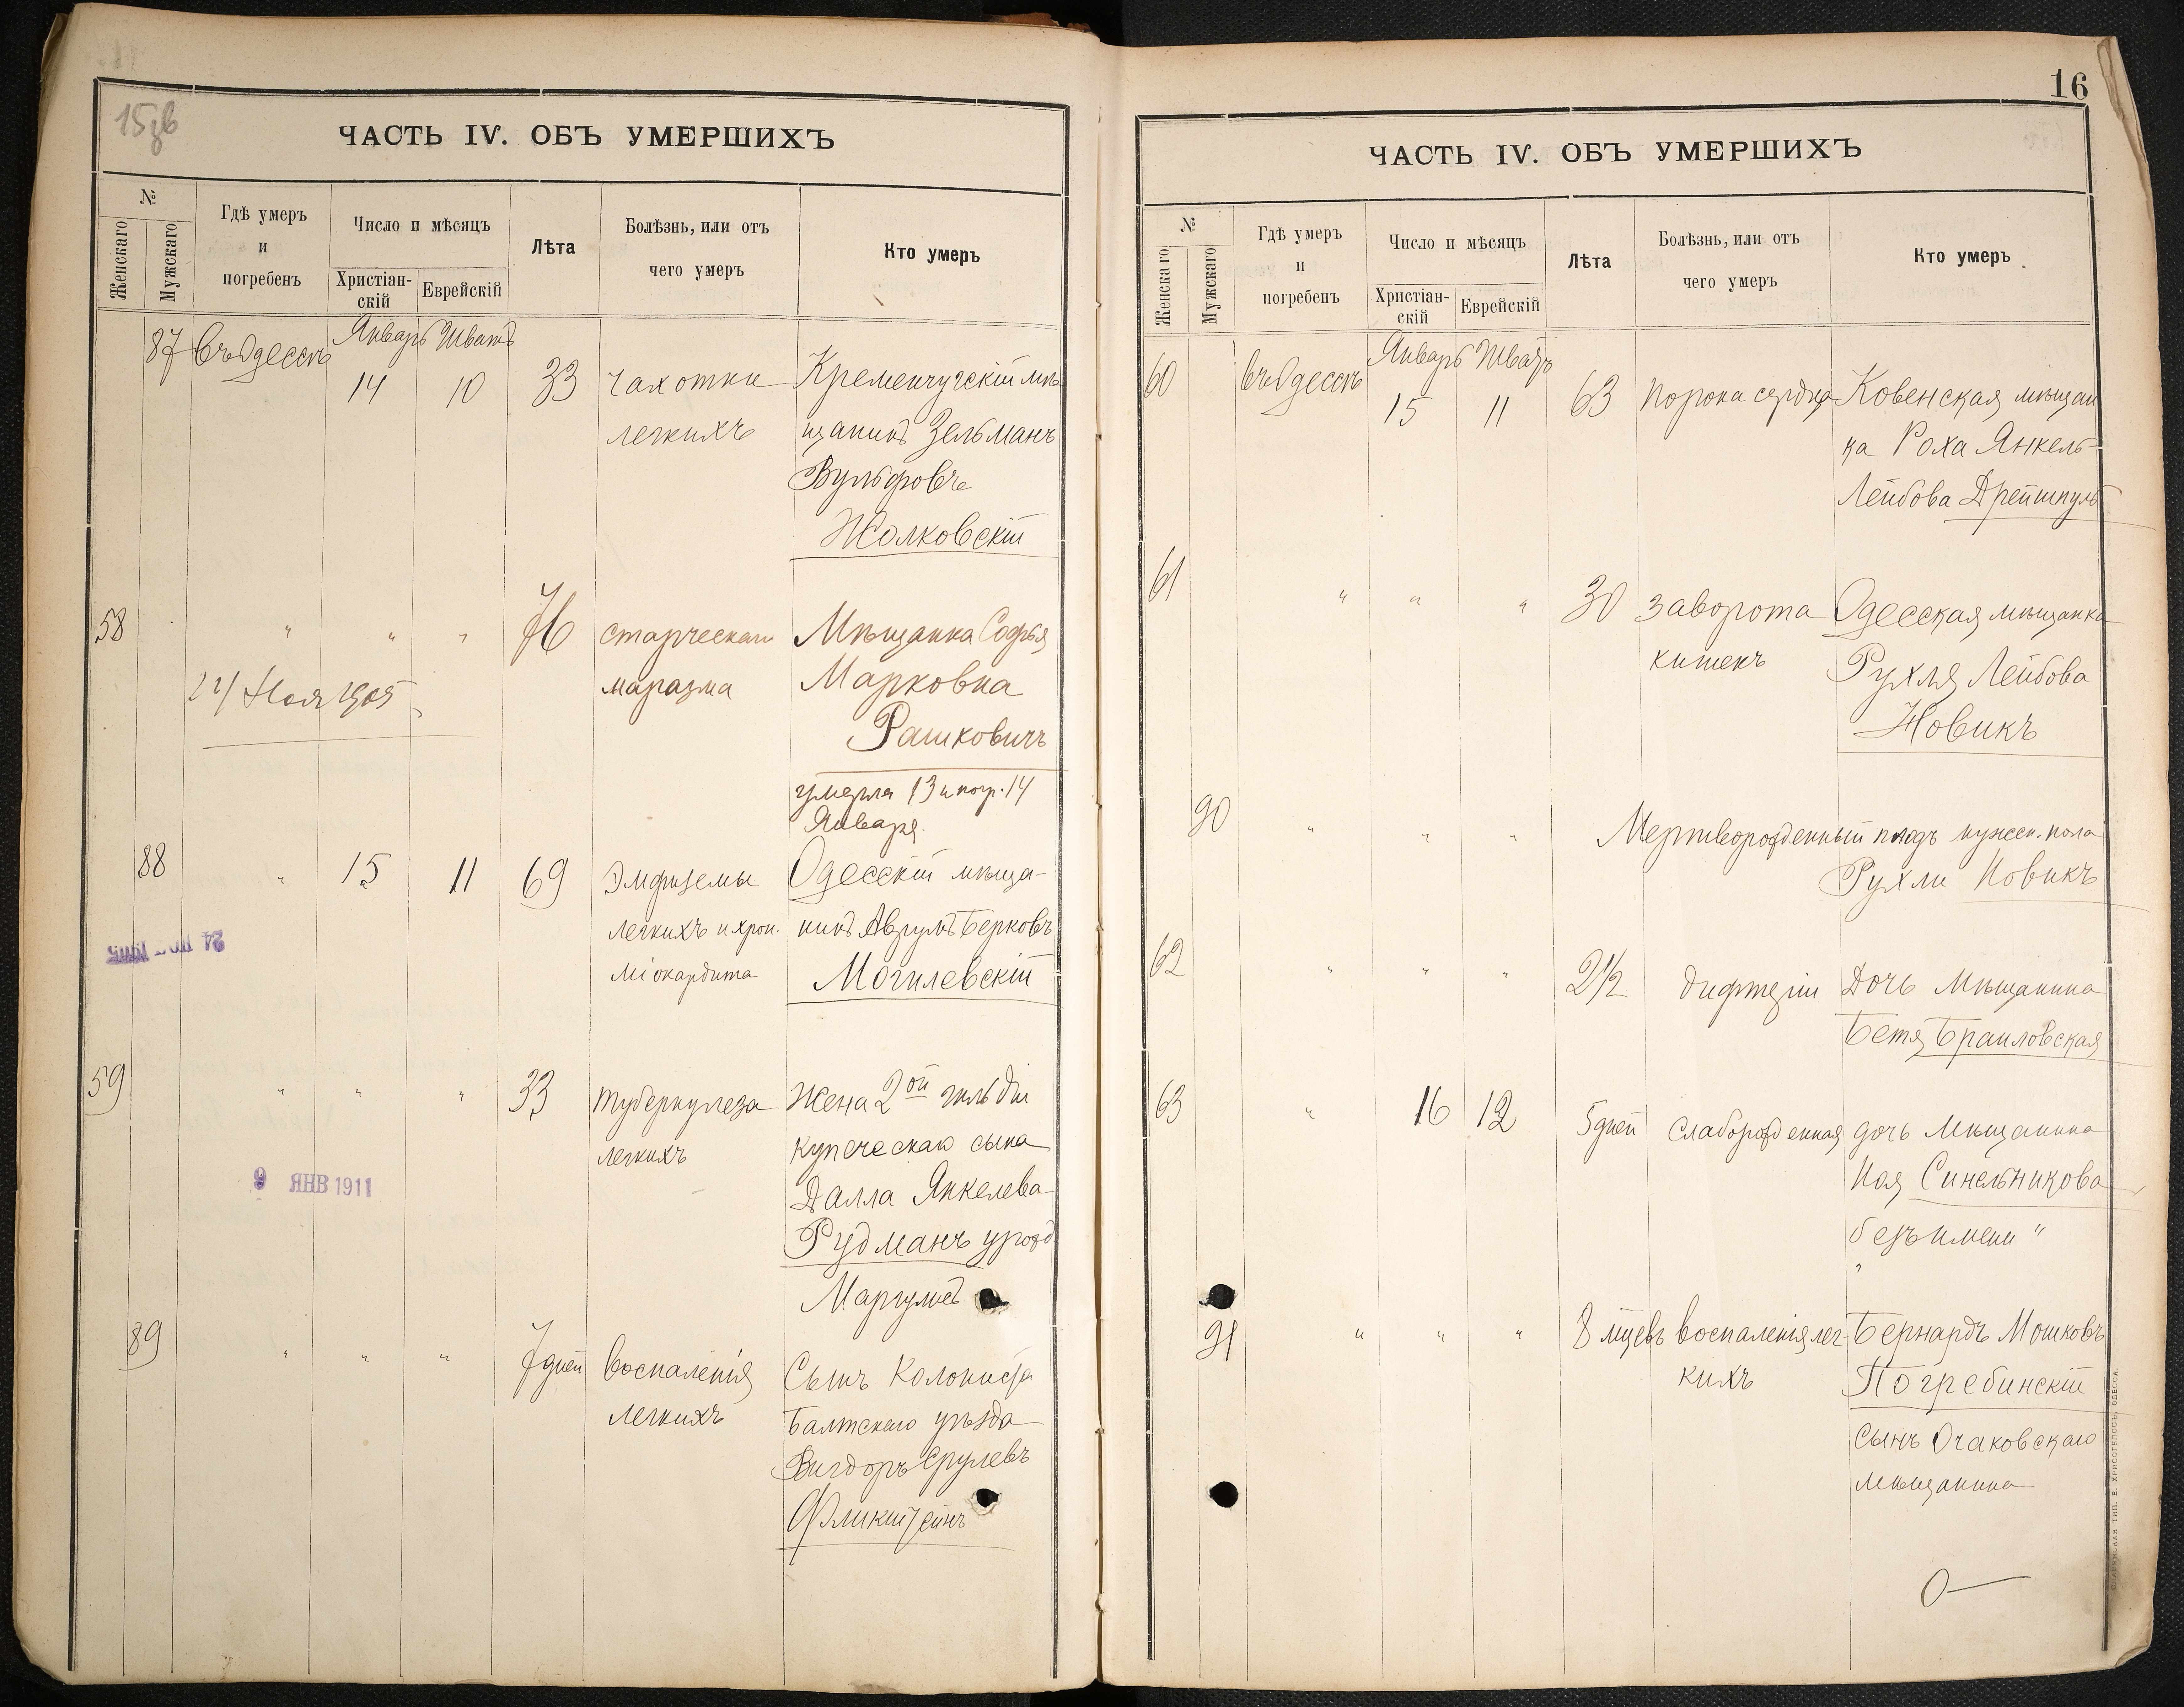 15зв
ЧАСТЬ IV. ОБЪ УМЕРШИХЪ
№
Женскаго
Мужскаго
Гдѣ умеръ
и
погребенъ
Число и мѣсяцъ
Христіан-
скій
Еврейскій
Лѣта
Болѣзнь, или отъ
чего умеръ
Кто умеръ
87 Въ Одессѣ Январь Шватъ
14 10 33 чахотки Кременчугскій мѣ
легкихъ щанинъ Зельманъ
Вульфовъ
Жолковскій
58 " " " 76 старческаго Мѣщанка Софья
маразма Марковна
Рашковичъ
умерла 13 и погр. 14
Января.
88 " 15 11 69 Эмфиземы Одесскій мѣща-
легкихъ и хрон. нинъ Аврумъ Берковъ
міокардита Могилевскій
59 " " " 33 туберкулеза Жена 2ой гильдіи
легкихъ купеческаго сына
9 ЯНВ 1911
Янкелева
Рудманъ урожд
Маргулисъ
89 " " " 7 дней воспаленія Сынъ Колониста
легкихъ Балтскаго уѣзда
Вигдоръ Срулевъ
16
ЧАСТЬ IV. ОБЪ УМЕРШИХЪ
№
Женскаго
Мужскаго
Гдѣ умеръ
и
погребенъ
Число и мѣсяцъ
Христіан-
скій
Еврейскій
Лѣта
Болѣзнь, или отъ
чего умеръ
Кто умеръ
60 Въ Одессѣ Январь Шватъ
15 11 63 порока сердца Ковенская мѣщан
ка Роха Янкель-
Лейбова
61 " " " 30 заворота Одесская мѣщанка
кишекъ Рухля Лейбова
Новикъ
90 " " " Мертворожденный плодъ мужск. пола
Рухли Новикъ
62 " " " 2 1/2 дифтеріи Дочь Мѣщанина
Бетя Браиловская
63 " 16 12 5 дней слаборожденная дочь Мѣщанина
Синельникова
безъ имени "
91 " " " 8 мцевъ воспаленія лег- Бернардъ Мошковъ
кихъ Погребинскій
сынъ Очаковскаго
мѣщанина